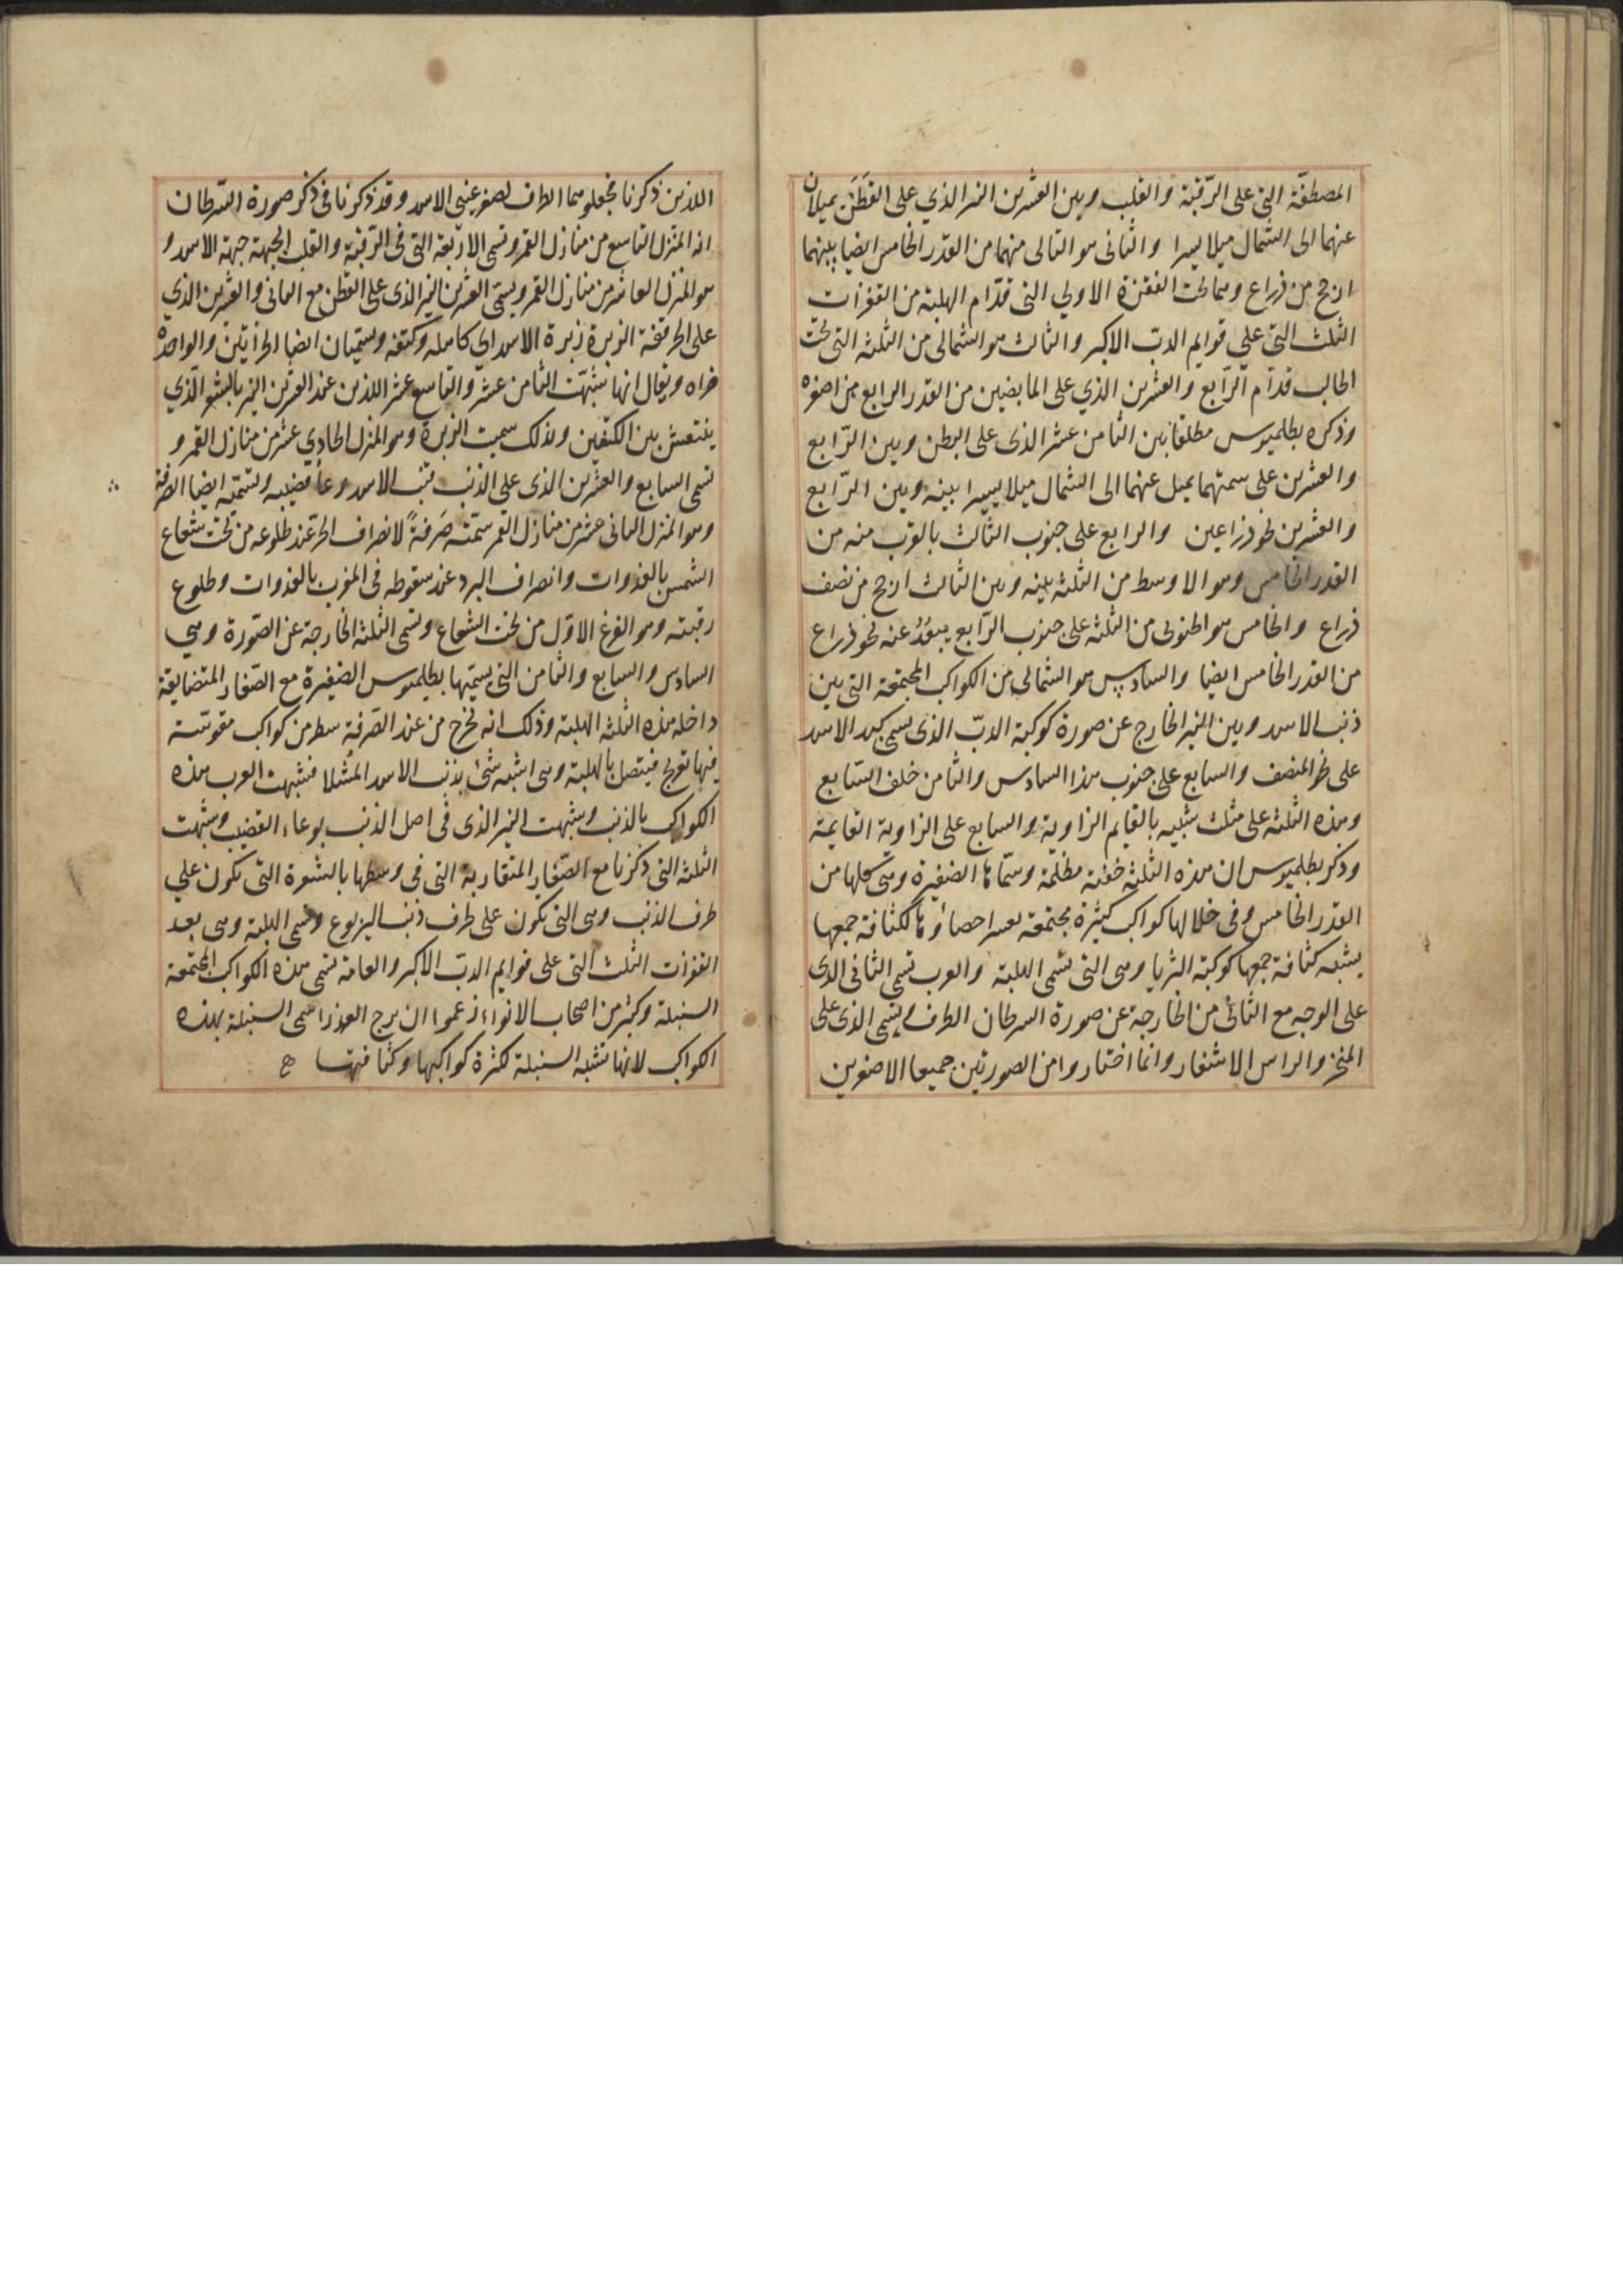 المصطفّة التي على الرّقبة والقلب وبين العشرين النير الذي على القَطَن يميلان
عنهما الى الشمال ميلا يسيرا والثانى هو التالى منهما من القدر الخامس ايضا بينهما
ارجح من ذراع وهما تحت القفزة الاولي التى قدّام الهلبة من القفزات
الثلث التي علي قوايم الدبّ الاكبر والثالث هو الشمالى من الثلثه التى تحت
الحالب قدّام الرّابع والعشرين الذي على المابضين من القدر الرابع من اصغره
وذكره بطلميوس مطلقا بين الثامن عشر الذى على البطن وبين الرّابع
والعشرين على سمتهما يميل عنهما الى الشمال ميلا يسيرا بينه وبين الرّابع
والعشرين نحو ذراعين والرابع على جنوب الثالث بالقرب منه من
القدر الخامس وهو الاوسط من الثلثه بينه وبين الثالث ارجح من نصف
ذراع والخامس هو الجنوبى من الثلثه على جنوب الرّابع يبعُدُ عنه نحو ذراع
من القدر الخامس ايضا والسادس هو الشمالى من الكواكب المجتمعة التى بين
ذنب الاسد وبين النير الخارج عن صورة كوكبة الدبّ الذى يسمى كبد الاسد
على المنصف والسابع على جنوب هذا السادس والثامن خلف السّابع
وهذه الثلثه على مثلث شبيه بالقايم الزاوية والسابع على الزاوية القايمة
وذكر بطلميوس ان هذه الثلثه خفية مظلمة وسمّاها الضفيرة وهى كلها من
القدر الخامس وفى خلالها كواكب كثيرة مجتمعه يعسر احصاؤها لكثافة جمعها
يشبه كثافة جمعها كوكبة الثريا وهى التى تسمى الهلبة والعرب تسمى الثانى الذى
على الوجه مع الثانى من الخارجة عن صورة السرطان الطرف ويسمى الذى على
المنخر والراس الاشفار وانما اختاروا من الصورتين جميعا الاصغرين
اللذين ذكرنا فجعلوهما الطرف لصغر عينى الاسد وقد ذكرنا فى ذكر صورة السّرطان
انه المنزل التاسع من منازل القمر وتسمى الاربعة التى فى الرّقبة والقلب الجبهة جبهة الاسد و
هو المنزل العاشر من منازل القمر ويسمّى العشرين النير الذى على القطن مع الثانى والعشرين الذي
على الحرقفة الزبرة زبرة الاسد اى كاهله وكتفه ويسمّيان ايضا الخراتين والواحدة
خراة ويقال انها شبّهت الثامن عشر والتاسع عشر اللذين عند العشرين النير بالشعر الّذي
ينتعش بين الكتفين ولذلك سميت الزبرة وهو المنزل الحادي عشر من منازل القمر و
تسمى السابع والعشرين الذى على الذنب قنب الاسد وعاء قضيبه وتسمّيه ايضا الصرفة
وهو المنزل الثانى عشر من منازل القمر سمّته صَرفةً لانصراف الحرّ عند طلوعه من تحت شعاع
الشمس بالغدوات وانصراف البرد عند سقوطه فى المغرب بالغدوات وطلوع
رقيبه وهو الفرغ الاوّل من تحت الشعاع وتسمى الثلثه الخارجة عن الصّورة وهي
السادس والسابع والثامن التى يسمّيها بطلميوس الضفيرة مع الصّغار المتضايقة
داخله هذه الثلثه الهلبة وذلك انه يخرج من عند الصّرفة سطر من كواكب مقوسّة
فيها تعوّج فيتصل بالهلبة وهى اشبه شئ بذنب الاسد فشبهت العرب هذه
الكواكب بالذنب وشبهت النير الذى فى اصل الذنب بوعاء القضيب وشبّهت
الثلثه التى ذكرنا مع الصّغار المتقاربة التى فى وسطها بالشعرة التى تكون علي
طرف الذنب وهى التى يكون على طرف ذنب اليربوع وتسمى الهلبة وهى بعد
القفزات الثلث التى على قوايم الدبّ الاكبر والعامة تسمى هذه الكواكب المجتمعة
السنبلة وكثير من اصحاب الانواء زعموا ان برج العذرا سمى السنبلة بهذه
الكواكب لانها تشبه السنبلة لكثرة كواكبها وكثافتها